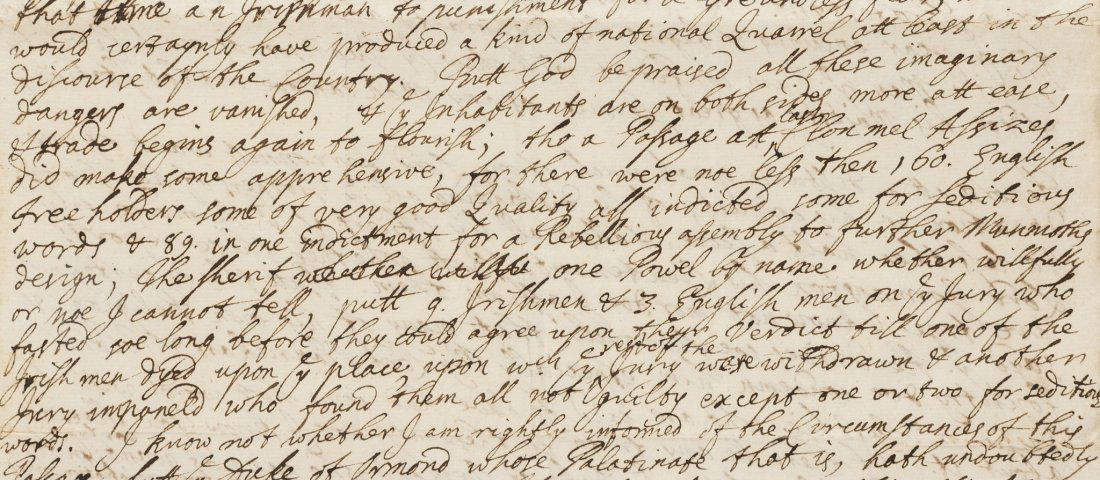 that time an Irishman to punishment for a groundless
would certaynly have produced a kind of national Quarrel att least in the
discourse of the Country. Butt God be praised all these imaginary
dangers are vanished, & ye Inhabitants are on both sides more att ease,
& trade begins again to flourish; tho a Passage att last Clonmel Assizes
did make some apprehensive, for there were noe less then 160. English
freeholders some of very good Quality all indicted some for seditious
words & 89. in one indictment for a Rebellious assembly to further Munmoths
design; The sherif whether willfu one Powel by name whether willfully
or noe I cannot tell, putt 9. Irishmen & 3. English men on ye Jury who
fasted soe long before they could agree upon theyr Verdict till one of the
Irish men dyed upon ye place, upon wch respect the ye Jury were withdrawn & another
Jury impaneld who found them all not guilty except one or two for seditious
words. I know not whether I am rightly informed of the Circumstances of this
Passage butt ye Duke of Ormond whose Palatinate that is, hath undoubtedly